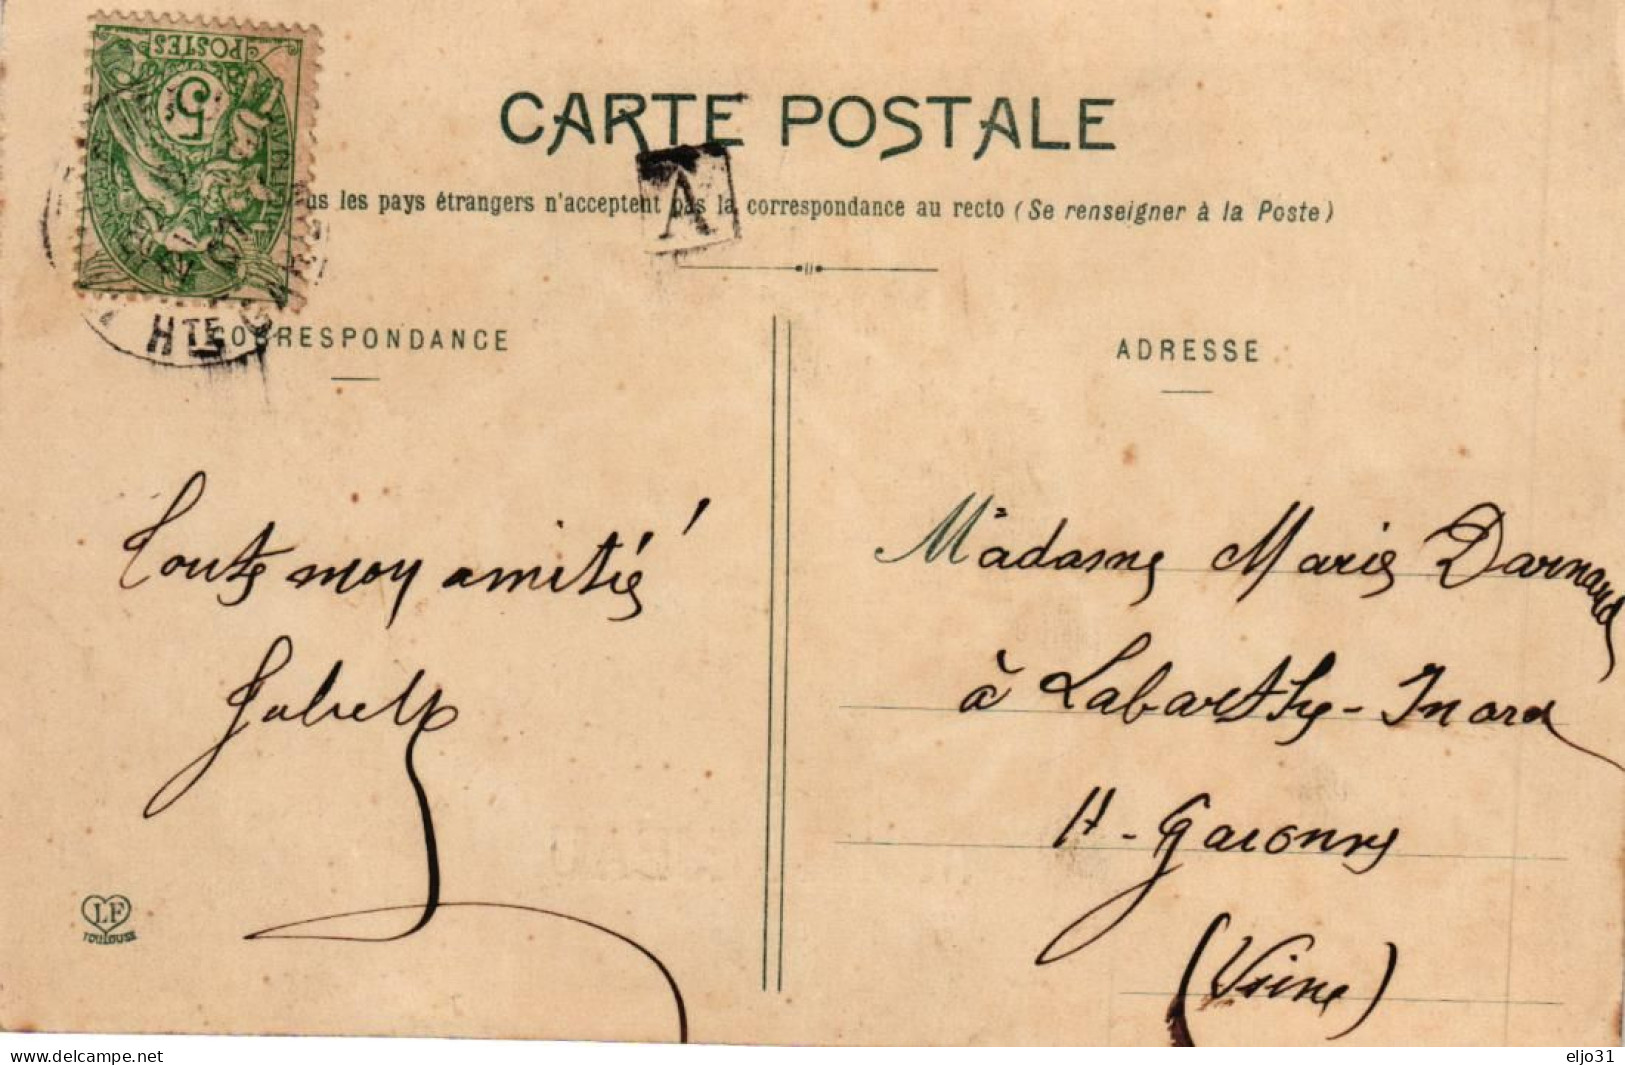 POSTES
5
CARTE POSTALE
A
us les pays étrangers n'acceptent pas la correspondance au recto (Se renseigner à la Poste)
HTE G
CORRESPONDANCE
ADRESSE
Toute moy amitié
Madame Marie Darnaud
à Labarthe-Inard
H-Garonne
LF
TOULOUSE
www.delcampe.net
eljo31